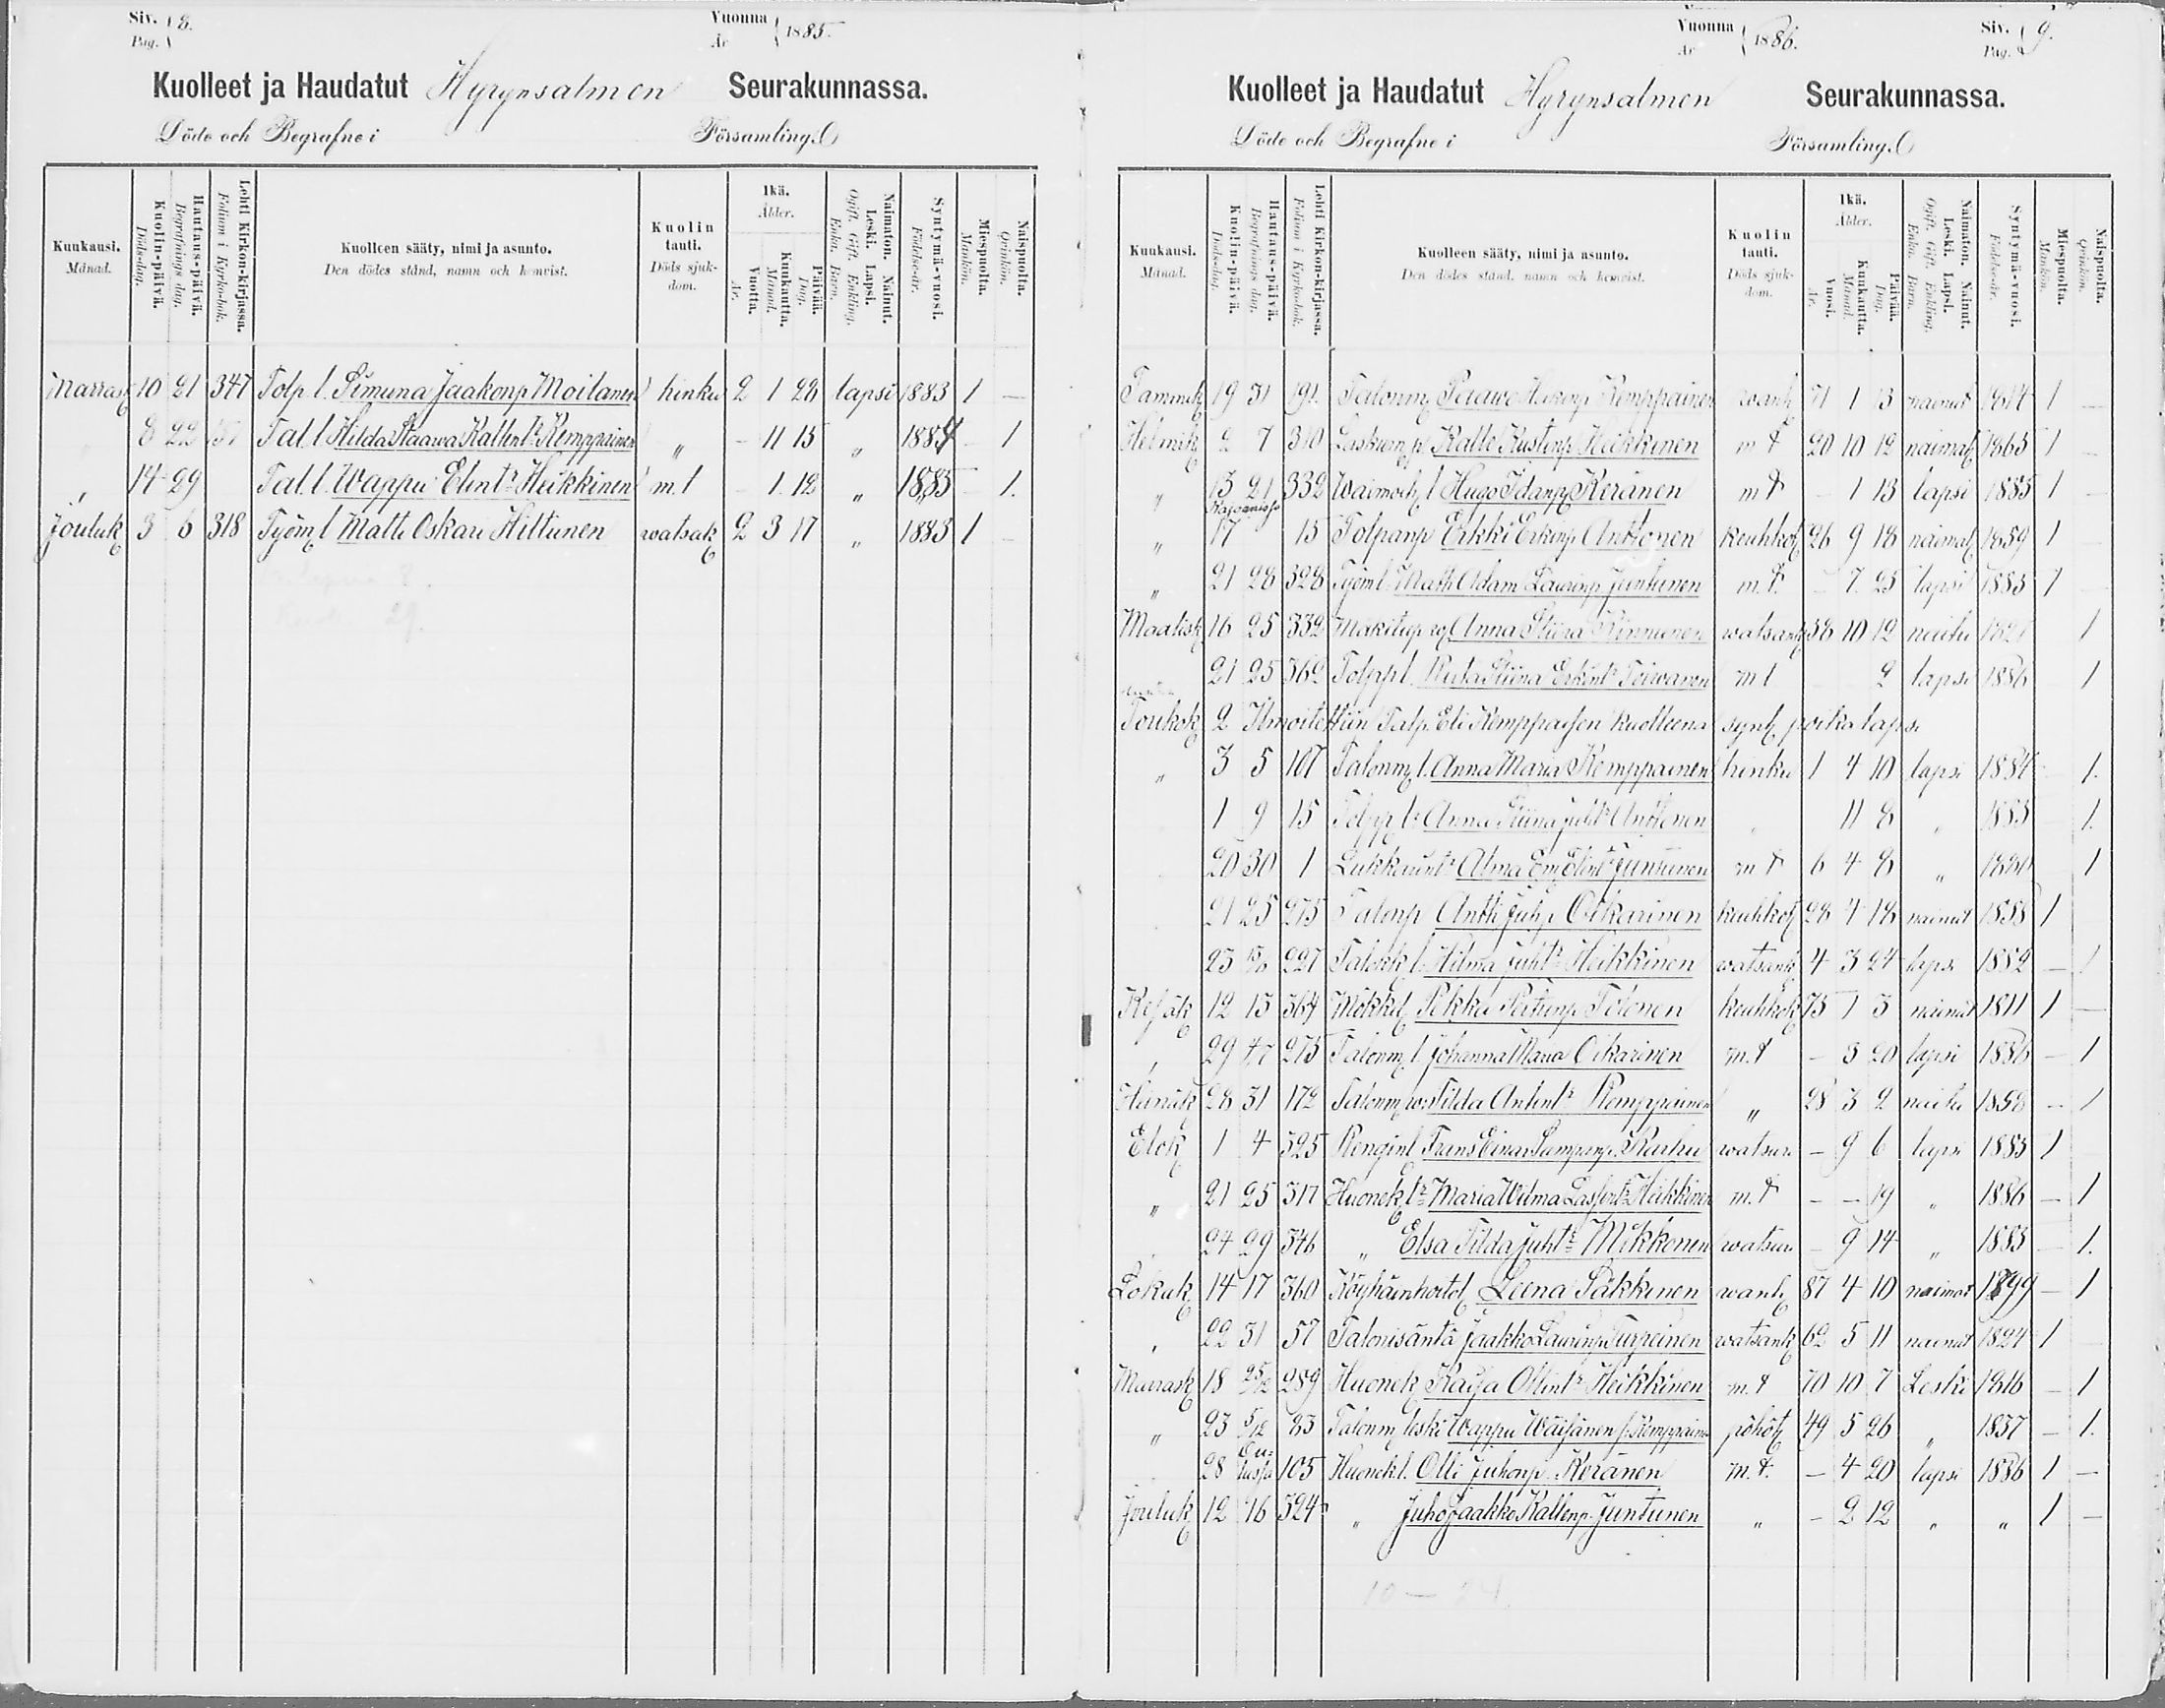 Siv. 8.
Pag.
Vuonna 1885.
År
Kuolleet ja Haudatut Hyrynsalmen Seurakunnassa.
Döde och Begrafne i Församling.
Kuukausi. Månad.
Kuolin-päivä. Döds-dag.
Hautaus-päivä. Begrafnings dag.
Lehti Kirkon-kirjassa. Folium i Kyrko-bok.
Kuolleen sääty, nimi ja asunto. Den dödes stånd, namn och hemvist.
Kuolin tauti. Döds sjukdom.
Ikä. Ålder.
Vuotta. År.
Kuukautta. Månad.
Päivää. Dag.
Naimaton. Nainut. Leski. Lapsi. Ogift. Gift. Enkling. Enka. Barn.
Syntymä-vuosi. Födelse-år.
Miespuolta. Mankön.
Naispuolta. Qvinkön.
Marrask 10 21 347 Tolp. l. Simuna Jaakonp Moilanen hinku 2 1 28 lapsi 1883 1 —
8 22 157 Tal. l Hilda Staawa Kallent^r Kemppainen „ – 11 15 „ 1884 – 1
„ 14 29 Tal. l. Wappu Elint^r Heikkinen m.t – 1 12 „ 1885 – 1.
Jouluk 3 6 318 Työm l Matti Oskari Hiltunen watsak 2 3 17 „ 1883 1 –
29.
Vuonna 1886.
År
Siv. 9.
Pag.
Kuolleet ja Haudatut Hyrynsalmen Seurakunnassa.
Döde och Begrafne i Församling.
Kuukausi. Månad.
Kuolin-päivä. Döds-dag.
Hautaus-päivä. Begrafnings dag.
Lehti Kirkon-kirjassa. Folium i Kyrko-bok.
Kuolleen sääty, nimi ja asunto. Den dödes stånd, namn och hemvist.
Kuolin tauti. Döds sjukdom.
Ikä. Ålder.
Vuosi. År.
Kuukautta. Månad.
Päivää. Dag.
Naimaton. Nainut. Leski. Lapsi. Ogift. Gift. Enkling. Enka. Barn.
Syntymä-vuosi. Födelse-år.
Miespuolta. Mankön.
Naispuolta. Qvinkön.
Tammik 19 31 191 Talonm Paawo Heikinp Kemppainen wanh 71 1 13 nainut 1814 1 —
Helmik 2 7 310 Kalle Kustinp Heikkinen m t 20 10 12 naimat 1865 1 —
„ 13 21 332 l Hugo Idanp Keränen m t – 1 13 lapsi 1885 1 —
„ 17 15 Tolpanp Erkki Erkinp Anttonen keuhkot 26 9 18 naimat 1859 1 –
„ 21 28 328 Työm l. Matti Adam Laurinp Juntunen m.t. – 7 25 lapsi 1885 1
Maalisk 16 25 332 Mäkitup Anna Stiina Kinnunen watsank 58 10 12 naitu 1827 1
21 25 362 Tolpp l. Stiina Erkint^r Toiwanen m t 2 lapsi 1886 1
Toukok 2 Ilmoitettiin Talp. Eli Kemppaisen kuolleena synt poika lapsi
„ 3 5 107 Talonm l. Anna Maria Kemppainen hinku 1 4 10 lapsi 1884 1.
1 9 15 Tolpp l. Anna Stiina Juht^r Anttonen „ 11 8 „ 1885 1.
20 30 1 Lukkarint^r Alma Em Elint^r Juntunen m t 6 4 8 „ 1880 1
21 25 275 Talonp Antti Juhp Oikarinen keuhkot 28 4 18 nainut 1858 1
23 227 l. Hilma Juht^r Heikkinen watsank 4 3 24 lapsi 1882 – 1
Kesäk 12 13 364 Mökkil Pekka Tolonen keuhkot 75 1 3 nainut 1811 1 —
„ 29 4/7 275 Talonm. l. Johanna Maria Oikarinen m.t – 3 20 lapsi 1886 – 1
Heinäk 28 31 172 Talonm Tilda Antint^r Kemppainen „ 28 3 2 naitu 1858 – 1
Elok 1 4 325 Rengin l Frans Einar Karhu watsan – 9 6 lapsi 1885 1
„ 21 25 317 Huonek l^r Maria Wilma Heikkinen m.t – – 19 „ 1886 – 1
„ 24 29 346 „ Elsa Tilda Juht^r Mikkonen watsan – 9 14 „ 1885 – 1.
Lokak 14 17 360 Köyhäinhoitol Leena Säkkinen wanh 87 4 10 naimat 1799 – 1
„ 22 31 57 Talonisäntä Jaakko Laurinp Turpeinen watsank 62 5 11 nainut 1824 1
Marrask 18 25/12 289 Huonek Kaija Ollint^r Heikkinen m.t 70 10 7 Leski 1816 – 1
„ 23 5/12 83 Talonm leski Wappu Wäisänen f. Kemppainen pöhöt 49 5 26 „ 1837 – 1.
28 Oulussa 105 Huonek l. Olli Juhonp Keränen m.t. – 4 20 lapsi 1886 1 –
Jouluk 12 16 324 „ Juho Jaakko Kallenp Juntunen „ – 2 12 „ „ 1 –
10 — 24.